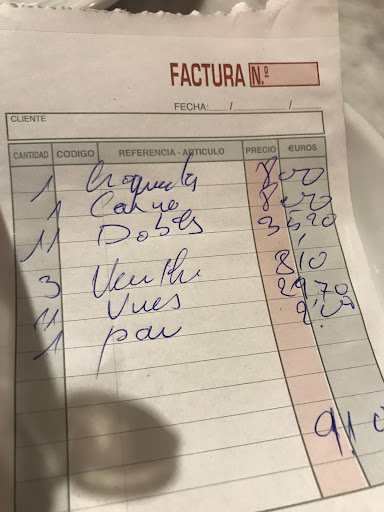 FACTURA N.º
FECHA: / /
CLIENTE
CANTIDAD CODIGO REFERENCIA - ARTICULO PRECIO €UROS
1 Croqueta 8,00
1 Carne 8,00
11 Dobles 35,20
3 8,10
11 29,70
1 pan 2,00
91,0